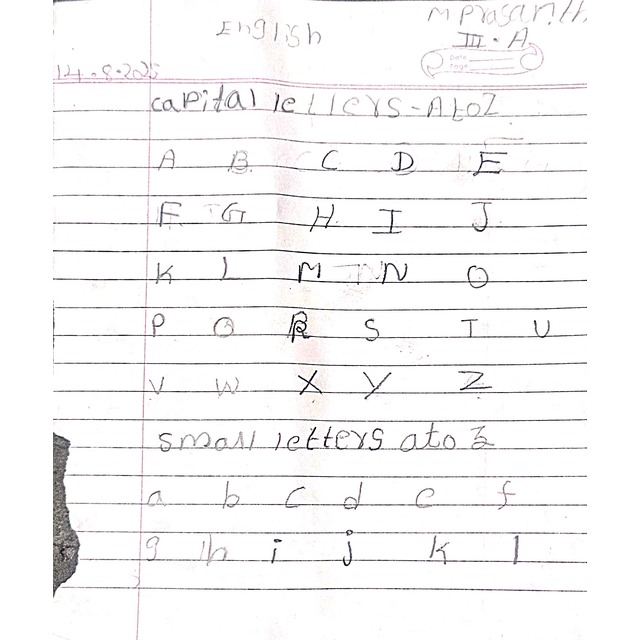 English
M Prasanth
III - A
Date
Page
14.8.2025
capital letters - A to Z
A B C D E
F G H I J
K L M N O
P Q R S T U
V W X Y Z
small letters a to z
a b c d e f
g h i j k l